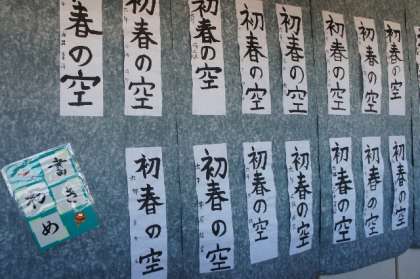 初春の空
初春の空
初春の空
初春の空
初春の空
初春の空
初春の空
初春の空
初春の空
書き
ぞめ
初春の空
初春の空
初春の空
初春の空
初春の空
初春の空
初春の空